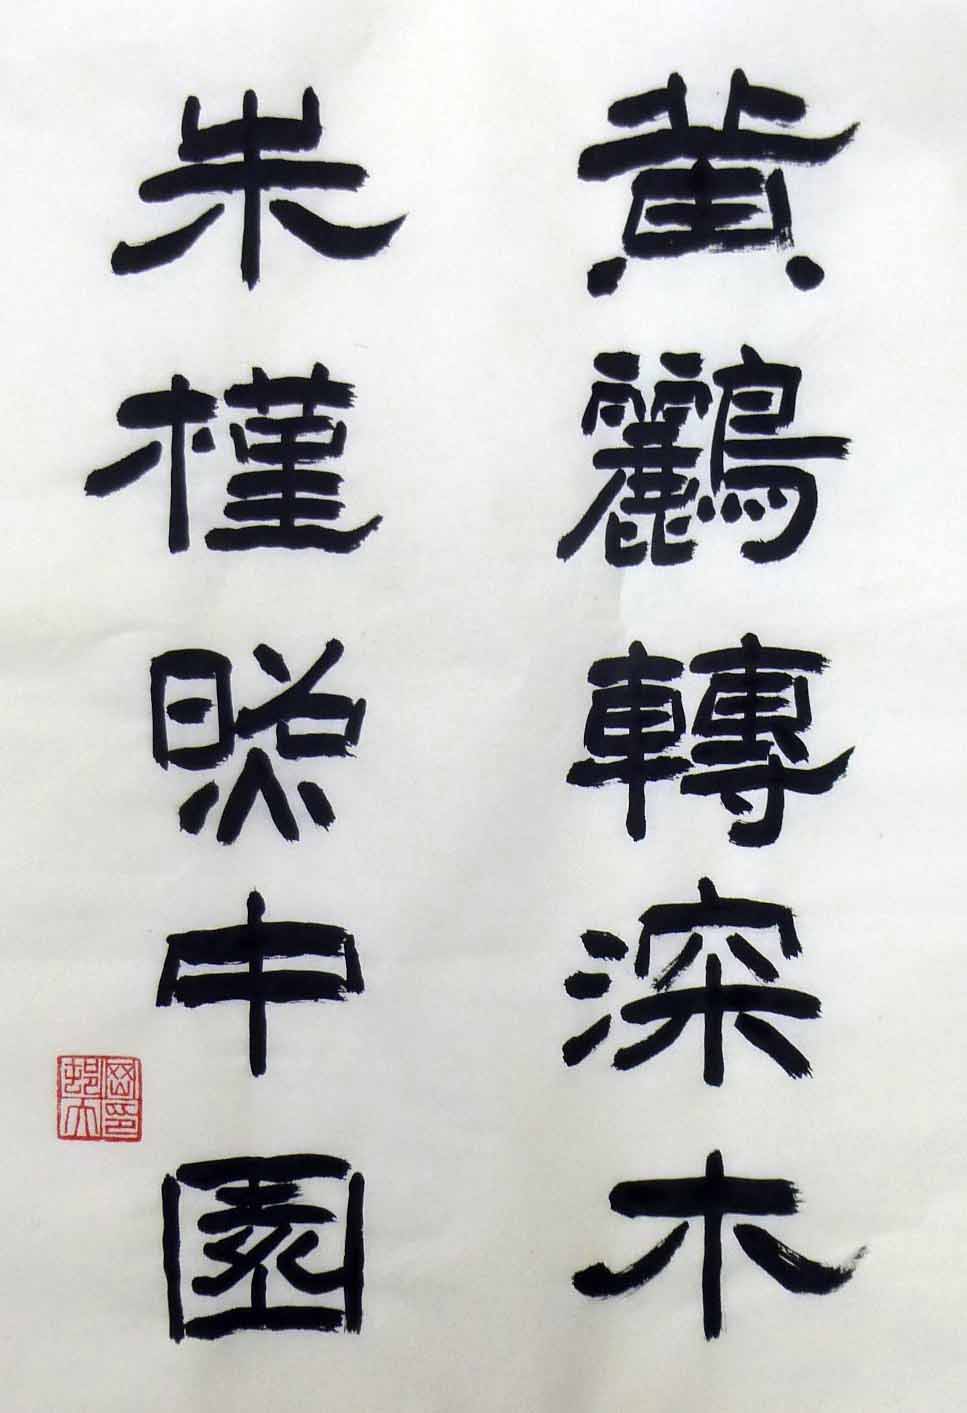 黄鸝轉深木
朱槿照中園